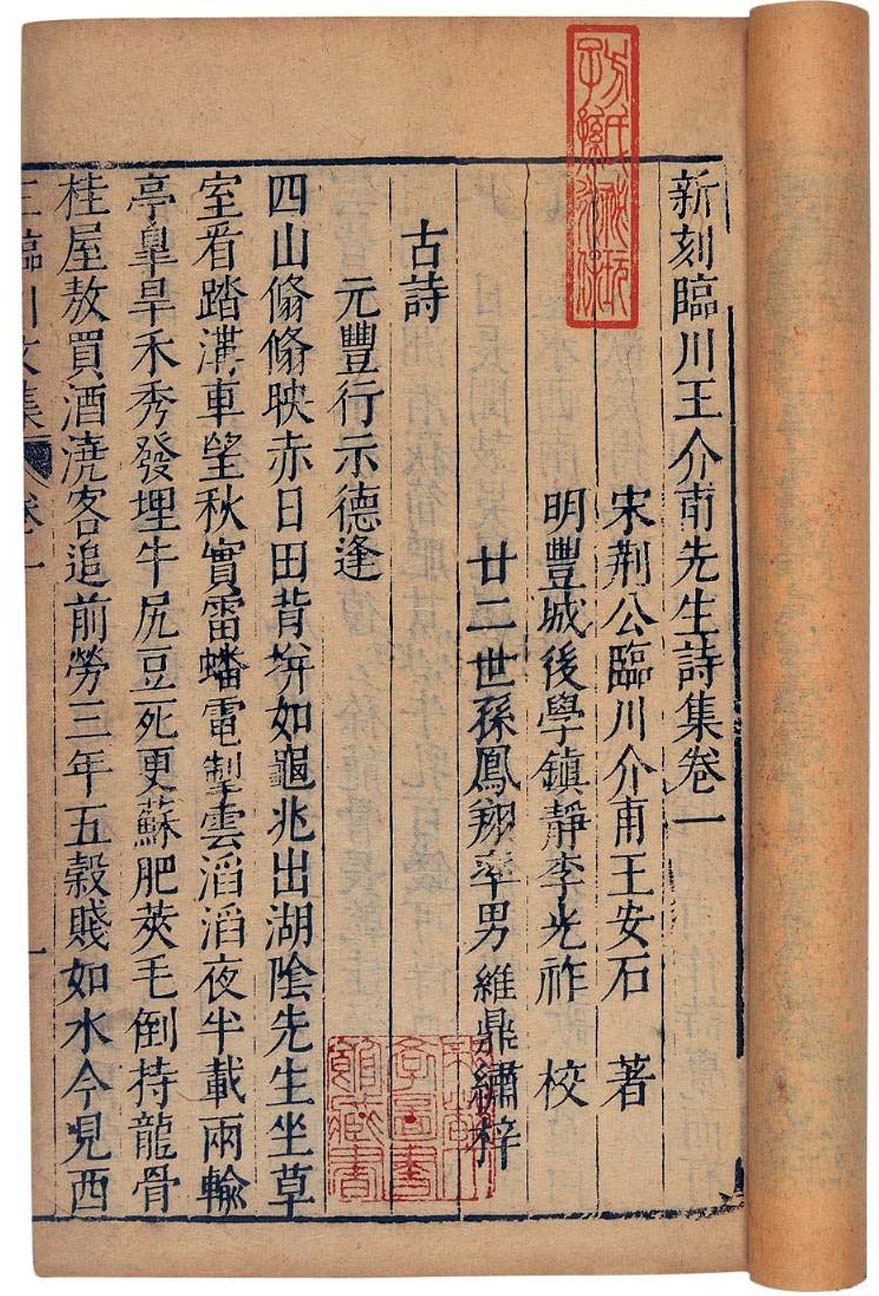 新刻臨川王介甫先生詩集卷一
宋荆公臨川介甫王安石 著
明豐城後學鎮靜李光祚 校
廿二世孫鳳翔率男維鼎繡梓
古詩
元豐行示德逢
四山翛翛映赤日田背坼如龜兆出湖陰先生坐草
室看踏溝車望秋實雷蟠電掣雲滔滔夜半載雨輸
亭臯旱禾秀發埋牛尻豆死更蘇肥莢毛倒持龍骨
桂屋敖買酒澆客追前勞三年五穀賤如水今見西
王臨川文集 卷一 一